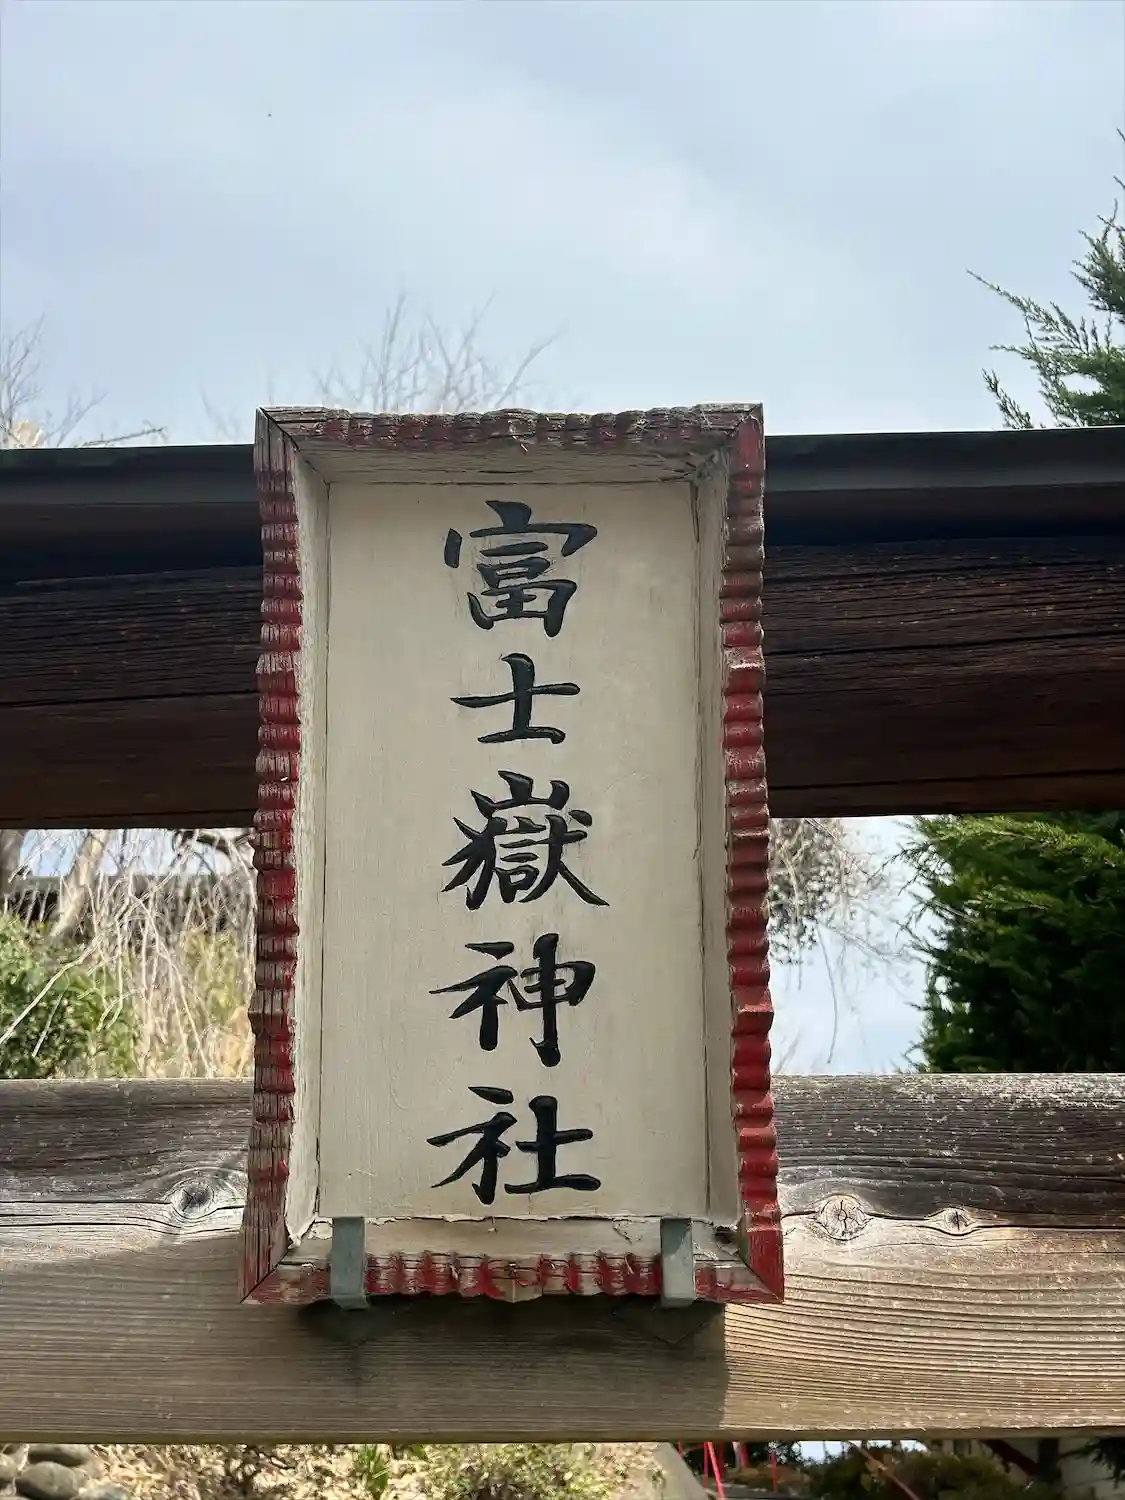 富士嶽神社